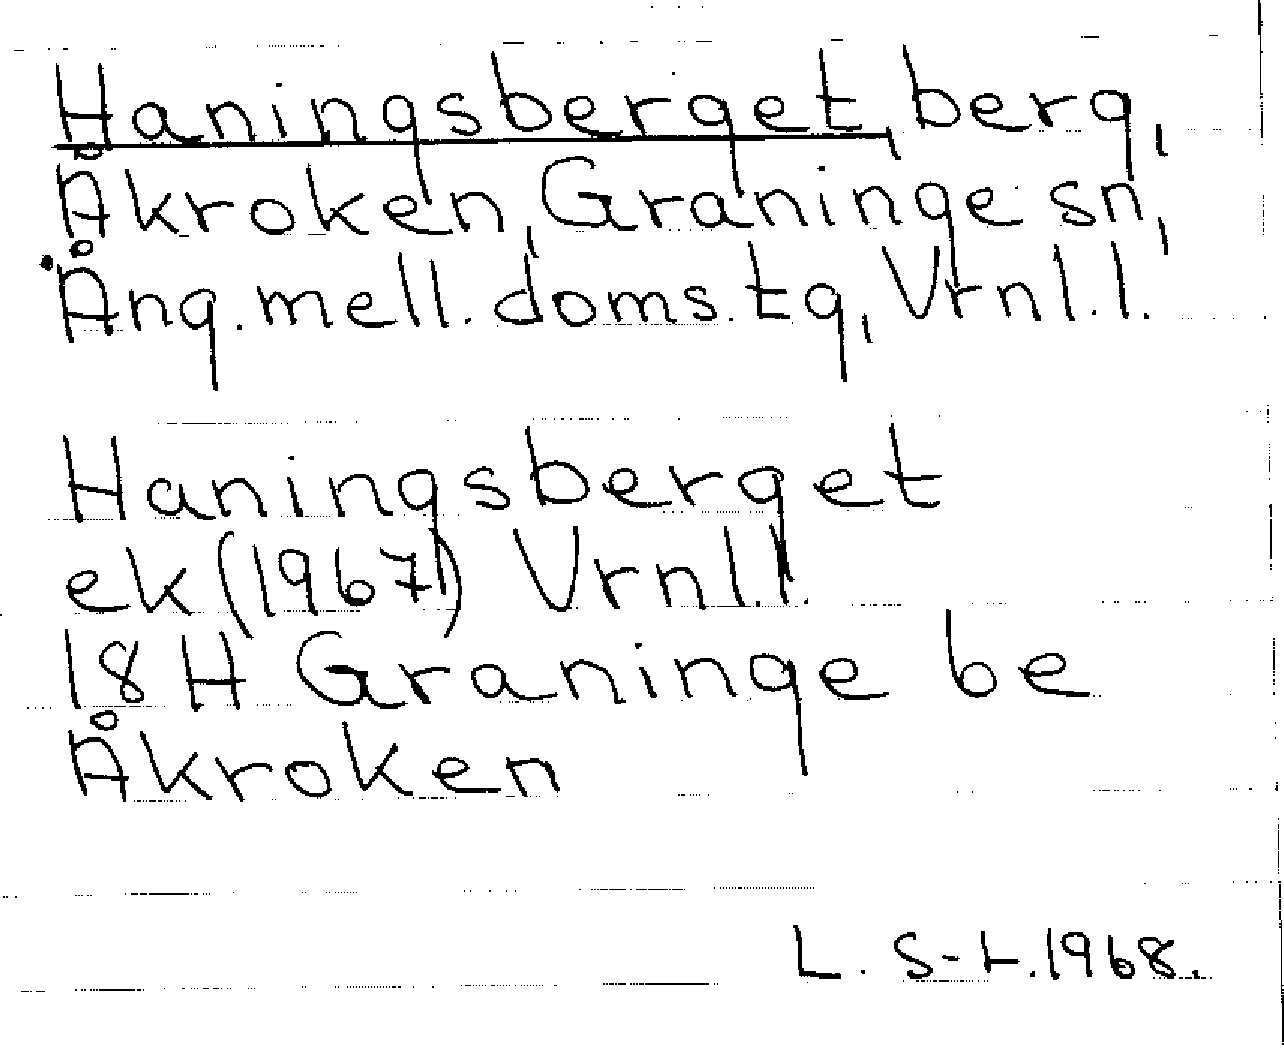 Haningsberget, berg,
Åkroken, Graninge sn,
Ång. mell. doms. tg, Vrnl.l.
Haningsberget
ek (1967) Vrnl.l.
18 H Graninge be
Åkroken
L. S-t. 1968.